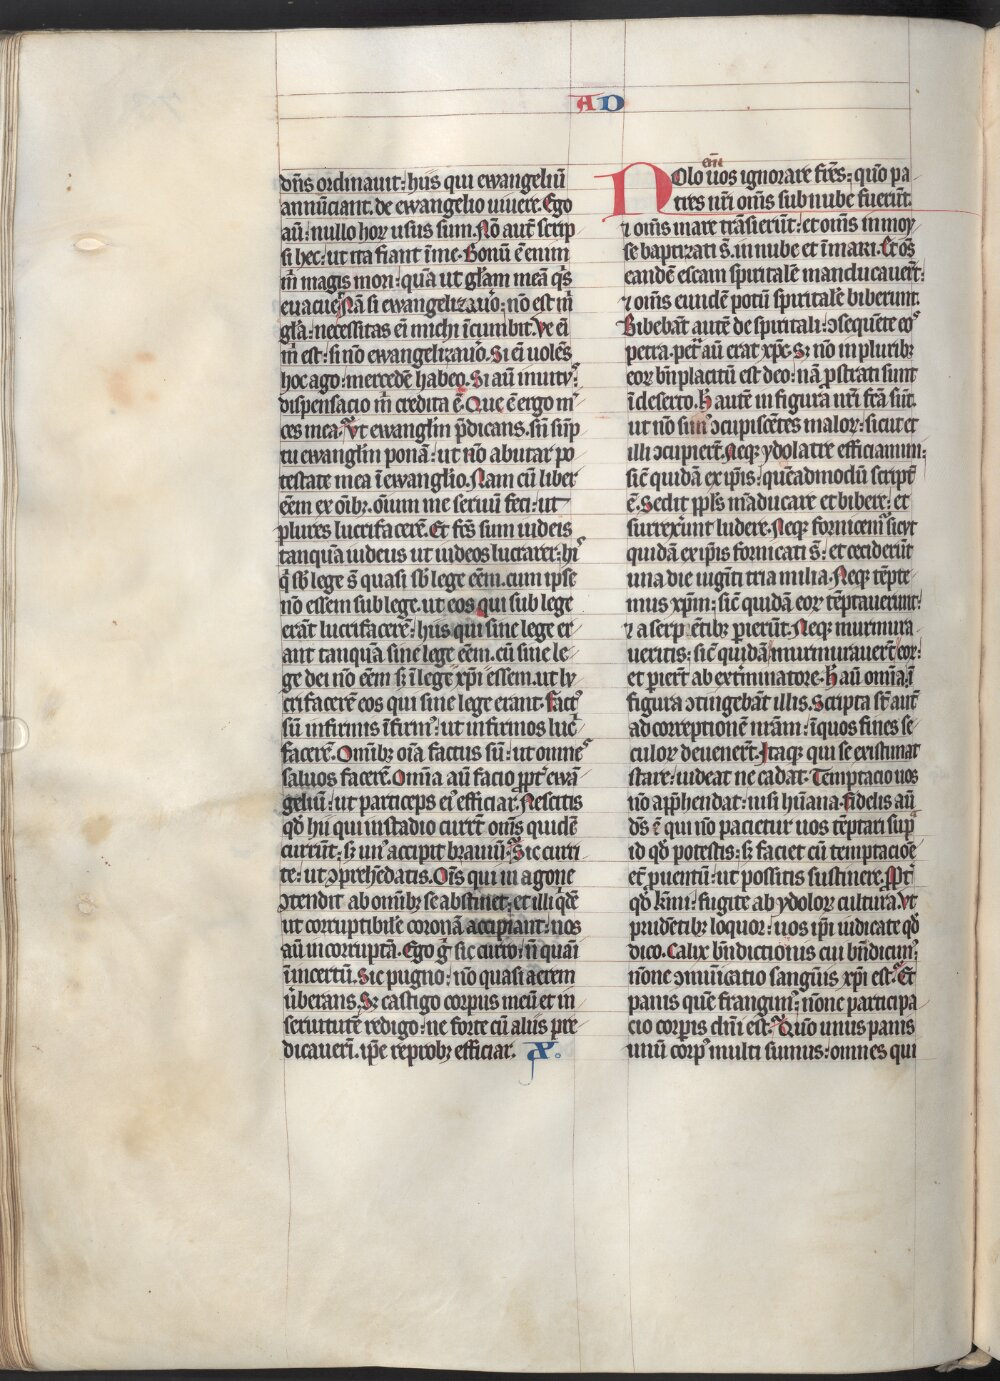 AD
dn̄s ordinauit: hiis qui ewangeliū
annūciant. de ewangelio uiuere. Ego
aū: nullo hoꝝ usus sum. Nō aut̄ scrip
si hec: ut ita fiant ī me. Bonū ē enim
m̄ magis mori: quā ut gl̄am meā qͥs
euacuet. Nā si ewangelizauͦo: nō est m̄
gl̄a: necessitas ei̅ michi īcumbit. Ve ei̅
m̄ est: si nō ewangelizauͦo. Si ei̅ uolēs
hoc ago: mercedē habeo. Si aū inuitꝰ:
dispensacio m̄ credita ē. Que ē ergo m̄
ces mea. Vt ewangl̄in p̄dicans. sin̄ sūp
tu ewangl̄in ponā: ut nō abutar po
testate mea ī ewangl̄io. Nam cū liber
eēm ex oīb;. oīum me seruū feci: ut
plures lucrifacerē. Et fc̄s sum iudeis
tanquā iudeus ut iudeos lucrarer: hiͥs
q̄ sb̄ lege s̄ quasi sb̄ lege eēm. cum ipse
nō essem sub lege. ut eos qui sub lege
erāt lucrifacerē. hiis qui sine lege er
ant tanquā sine lege eēm. cū sine le
ge dei nō eēm sꝫ ī lege xp̄i essem. ut lu
crifacerē eos qui sine lege erant. Factꝰ
sū infirmis īfirmꝰ: ut infirmos luc̄
facerē. Omīb; oīa factus sū: ut omneˢ
saluos facerē. Omīa aū facio ꝓpt̄ ewā
geliū: ut particeps eiꝰ efficiar. Nescitis
qd̄ hii qui in stadio currt̄ om̄s quidē
currūt: sꝫ unꝰ accipit brauiū. Sic curri
te: ut ꝯprehēdatis. Om̄s qui in agone
ꝯtendit ab omīb; se abstinet: et illi qͥdē
ut corruptibilē coronā accipiant: nos
aū incorruptā. Ego gͦ sic curro: n̄ quasi
ī incertū. Sic pugno: nō quasi aerem
ūberans. Sꝫ castigo corpus meū et in
seruitutē redigo: ne forte cū aliis pre
dicauerī. ip̄e reprob; efficiar. X.
eni̅
NOlo uos ignorare fr̄es: quō pa
tres nr̄i om̄s sub nube fuerūt.
⁊ om̄s mare trāsierūt: et om̄s in moy
se baptizati s̄. in nube et ī mari. Et om̄s
eandē escam spiritalē manducauer̄t:
⁊ om̄s eundē potū spiritalē biberunt.
Bibebāt autē de spiritali: ꝯsequēte eoˢ
petra. pet̄ aū erat xp̄c. Sꝫ nō in plurib;
eoꝝ bn̄placitū est deo: nā ꝓstrati sunt
ī deserto. H̄ autē in figura nr̄i fc̄a sūt.
ut nō simꝰ ꝯcupiscētes maloꝝ: sicut et
illi ꝯcupiert̄. Neqꝫ ydolatre efficiamini:
sic̄ quidā ex ip̄is: quēadmodū script̄
ē. Sedit ppl̄s māducare et bibere: et
surrexr̄unt ludere. Neqꝫ fornicemͬ sicut
quidā ex ip̄is fornicati s̄: et ceciderūt
una die uigīti tria milia. Neqꝫ tēpte
mus xp̄m: sic̄ quidā eoꝝ tēptauerunt:
⁊ a serpētib; perierūt. Neqꝫ murmura
ueritis: sic̄ quidā murmurauert̄ eoꝝ:
et piert̄ ab ext̄minatore. H̄ aū omīa: ī
figura ꝯtingebāt illis. Scripta st̄ aut̄
ad correptionē nr̄am: ī quos fines se
culoꝝ deuenert̄. Itaqꝫ qui se existimat
stare: uideat ne cadat. Temptacio uos
nō app̄hendat: nisi hūana. Fidelis aū
ds̄ ē qui nō pacietur uos tēptari supͣ
id qd̄ potestis: sꝫ faciet cū temptacioē
et̄ ꝓuentū: ut possitis sustinere. Ꝓpt̄
qd̄ kr̄mi: fugite ab ydoloꝝ cultura. Vt
prudētib; loquor: uos ip̄i iudicate qd̄
dico. Calix bn̄dictionis cui bn̄dicimꝰ:
nōne ꝯmūicatio sanguīs xp̄i est. Et
panis quē frangimꝰ: nōne participa
cio corꝑis dn̄i est. Quō unus panis
unū corpꝰ multi sumus: omnes qui